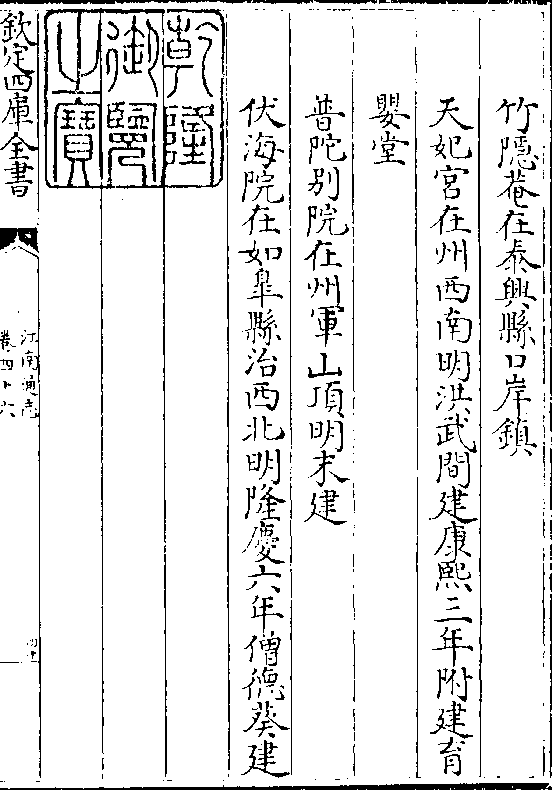 竹隱菴在泰興縣口岸鎮
天妃宮在州西南明洪武間建康熙三年附建育
嬰堂
普陀别院在州軍山頂明末建
伏海院在如臯縣治西北明隆慶六年僧德葵建
乾隆
御覽
之寶
欽定四庫全書
江南通志
卷四十六